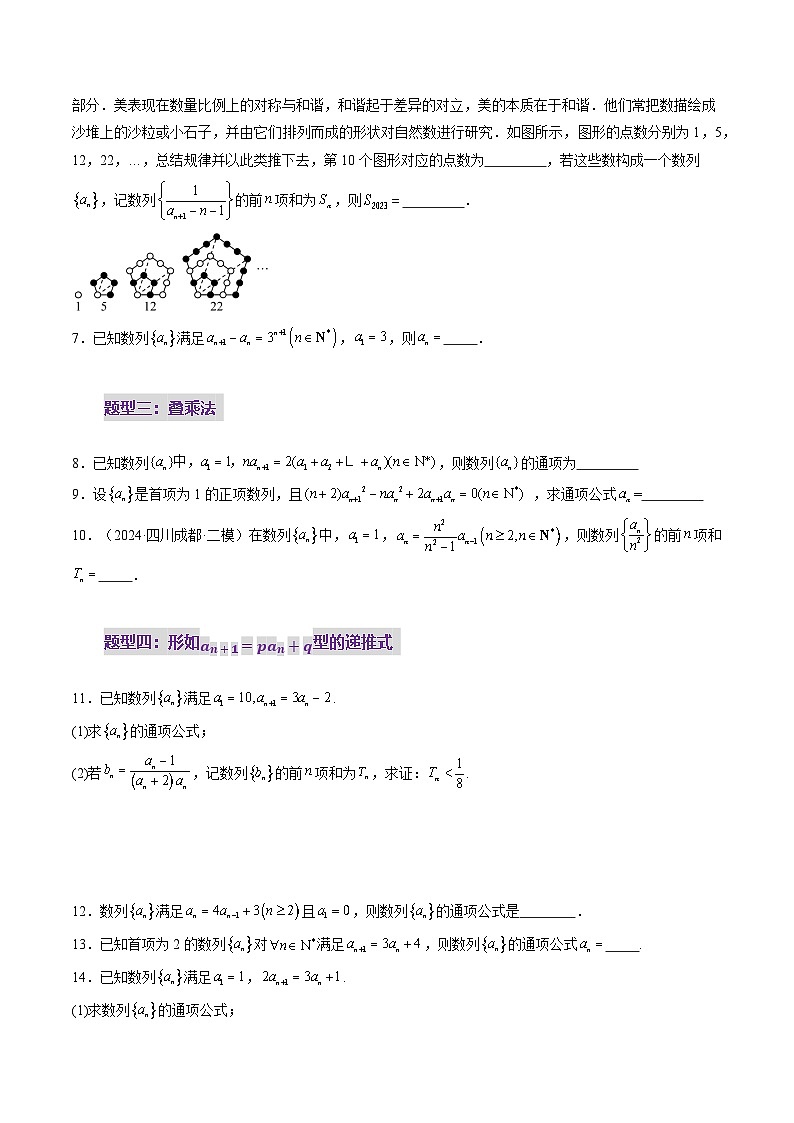 部分．美表现在数量比例上的对称与和谐，和谐起于差异的对立，美的本质在于和谐．他们常把数描绘成
沙堆上的沙粒或小石子，并由它们排列而成的形状对自然数进行研究．如图所示，图形的点数分别为 1，5，
12，22，…，总结规律并以此类推下去，第 10 个图形对应的点数为________，若这些数构成一个数列
{aₙ}，记数列{1/(aₙ₊₁−n−1)}的前 n 项和为 Sₙ，则 S₂₀₂₃ = ________．
1 5 12 22 …
7．已知数列{aₙ}满足 aₙ₊₁−aₙ=3ⁿ⁺¹(n∈N*)，a₁=3，则 aₙ=_____．
题型三：叠乘法
8．已知数列{aₙ}中，a₁=1，naₙ₊₁=2(a₁+a₂+L+aₙ)(n∈N*)，则数列{aₙ}的通项为________
9．设{aₙ}是首项为 1 的正项数列，且(n+2)aₙ₊₁²−naₙ²+2aₙ₊₁aₙ=0(n∈N*)，求通项公式 aₙ=________
10．（2024·四川成都·二模）在数列{aₙ}中，a₁=1，aₙ=n²/(n²−1)aₙ₋₁(n≥2,n∈N*)，则数列{aₙ/n²}的前 n 项和
Tₙ=_____．
题型四：形如aₙ₊₁=paₙ+q型的递推式
11．已知数列{aₙ}满足 a₁=10,aₙ₊₁=3aₙ−2．
(1)求{aₙ}的通项公式；
(2)若 bₙ=(aₙ−1)/((aₙ+2)aₙ)，记数列{bₙ}的前 n 项和为 Tₙ，求证：Tₙ<1/8．
12．数列{aₙ}满足 aₙ=4aₙ₋₁+3(n≥2)且 a₁=0，则数列{aₙ}的通项公式是________．
13．已知首项为 2 的数列{aₙ}对∀n∈N*满足 aₙ₊₁=3aₙ+4，则数列{aₙ}的通项公式 aₙ=_____.
14．已知数列{aₙ}满足 a₁=1，2aₙ₊₁=3aₙ+1．
(1)求数列{aₙ}的通项公式；